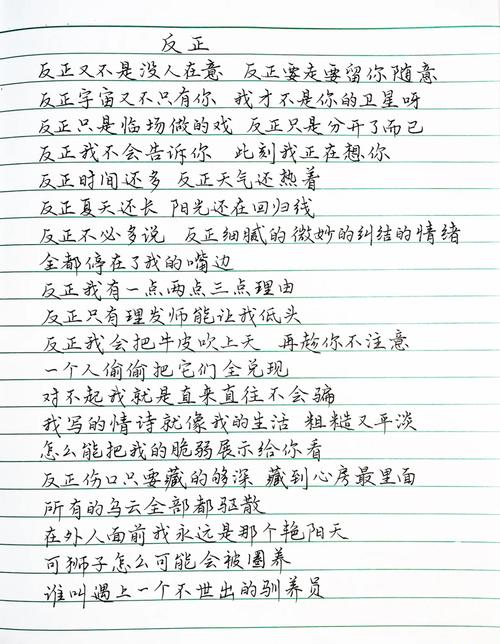 反正
反正又不是没人在意 反正要走要留你随意
反正宇宙又不只有你 我才不是你的卫星呀
反正只是临场做的戏 反正只是分开了而已
反正我不会告诉你 此刻我正在想你
反正时间还多 反正天气还热着
反正夏天还长 阳光还在回归线
反正不必多说 反正细腻的微妙的纠结的情绪
全都停在了我的嘴边
反正我有一点两点三点理由
反正只有理发师能让我低头
反正我会把牛皮吹上天 再趁你不注意
一个人偷偷把它们全兑现
对不起我就是直来直往不会骗
我写的情诗就像我的生活 粗糙又平淡
怎么能把我的脆弱展示给你看
反正伤口只要藏的够深 藏到心房最里面
所有的乌云全部都驱散
在外人面前我永远是那个艳阳天
可狮子怎么可能会被圈养
谁叫遇上一个不世出的驯养员